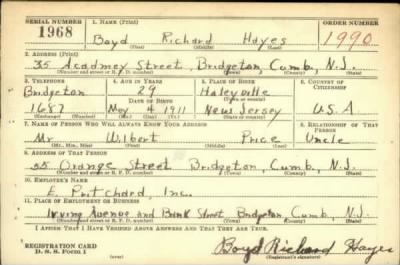 SERIAL NUMBER 1. NAME (Print) ORDER NUMBER
1968 Boyd Richard Hayes 1990
(First) (Middle) (Last)
2. ADDRESS (Print)
35 Acadmey Street, Bridgeton Cumb, N.J.
(Number and street or R. F. D. number) (Town) (County) (State)
3. TELEPHONE 4. AGE IN YEARS 5. PLACE OF BIRTH 6. COUNTRY OF CITIZENSHIP
Bridgeton 29 Haleyville
DATE OF BIRTH (Town or county)
1687 May 4 1911 New Jersey U.S.A
(Exchange) (Number) (Mo.) (Day) (Yr.) (State or country)
7. NAME OF PERSON WHO WILL ALWAYS KNOW YOUR ADDRESS 8. RELATIONSHIP OF THAT PERSON
Mr Wilbert Price Uncle
(Mr., Mrs., Miss) (First) (Middle) (Last)
9. ADDRESS OF THAT PERSON
55 Orange Street Bridgeton, Cumb, N.J.
(Number and street or R. F. D. number) (Town) (County) (State)
10. EMPLOYER'S NAME
E. Pritchard, Inc.
11. PLACE OF EMPLOYMENT OR BUSINESS
Irving Avenue and Bank Street Bridgeton Cumb, N.J.
(Number and street or R. F. D. number) (Town) (County) (State)
I AFFIRM THAT I HAVE VERIFIED ABOVE ANSWERS AND THAT THEY ARE TRUE.
REGISTRATION CARD
D. S. S. Form 1 Boyd Richard Hayes
(over) (Registrant's signature)